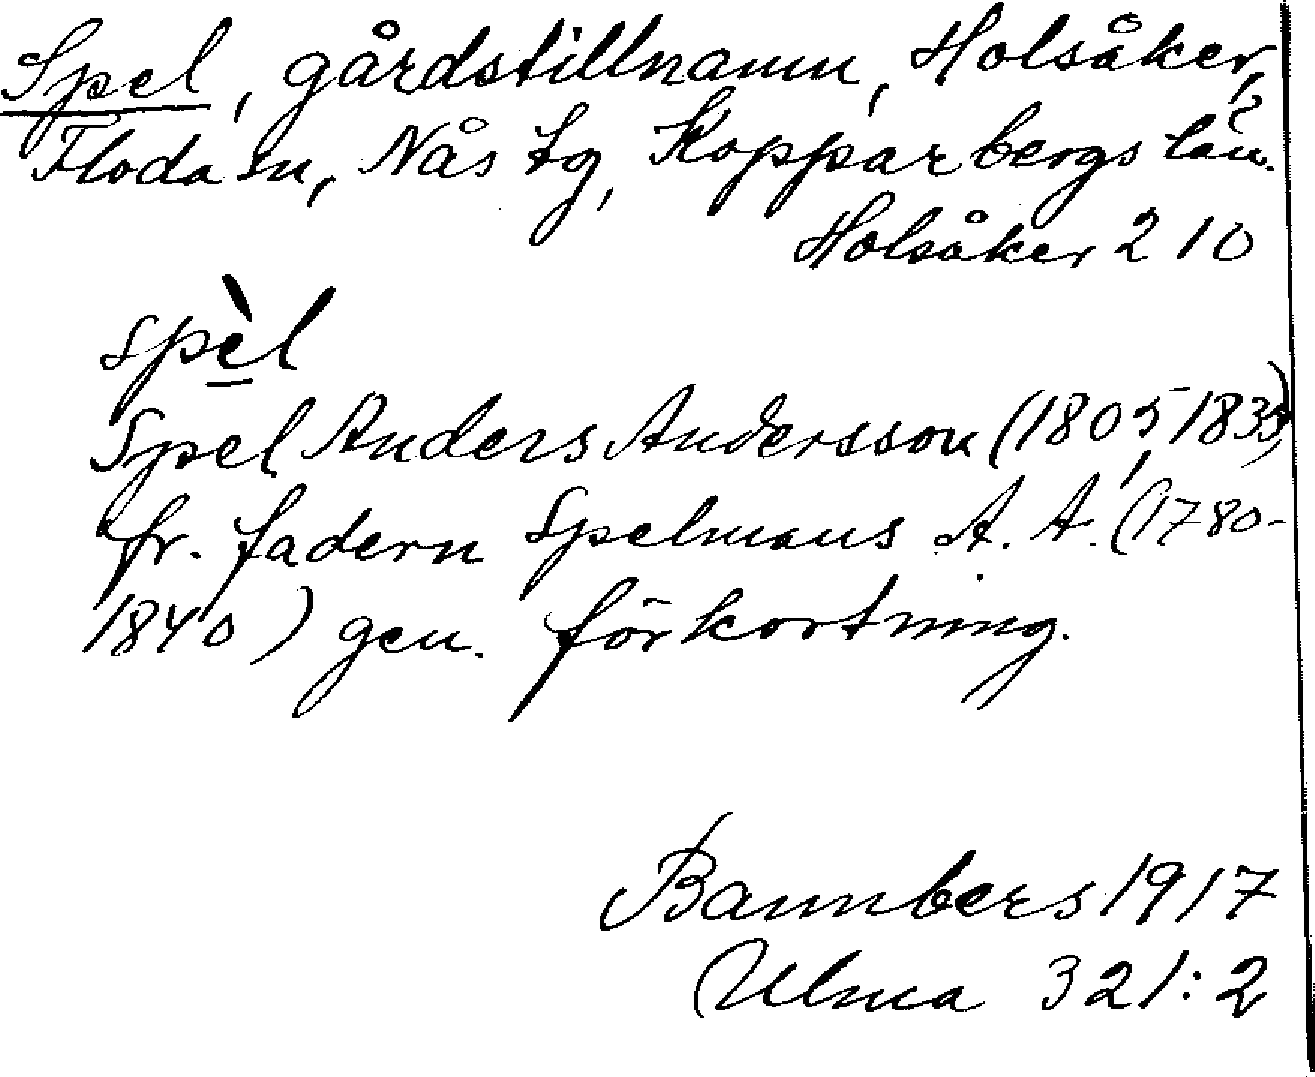 Spel, gårdstillnamn, Holsåker,
Floda sn, Nås tg, Kopparbergs län.
Holsåker 2 10
spèl
Spel Anders Andersson (1805, 1835)
fr. fadern Spelmans A. A. (1780-
1840) gen. förkortning.
Bannbers 1917
Ulma 321:2